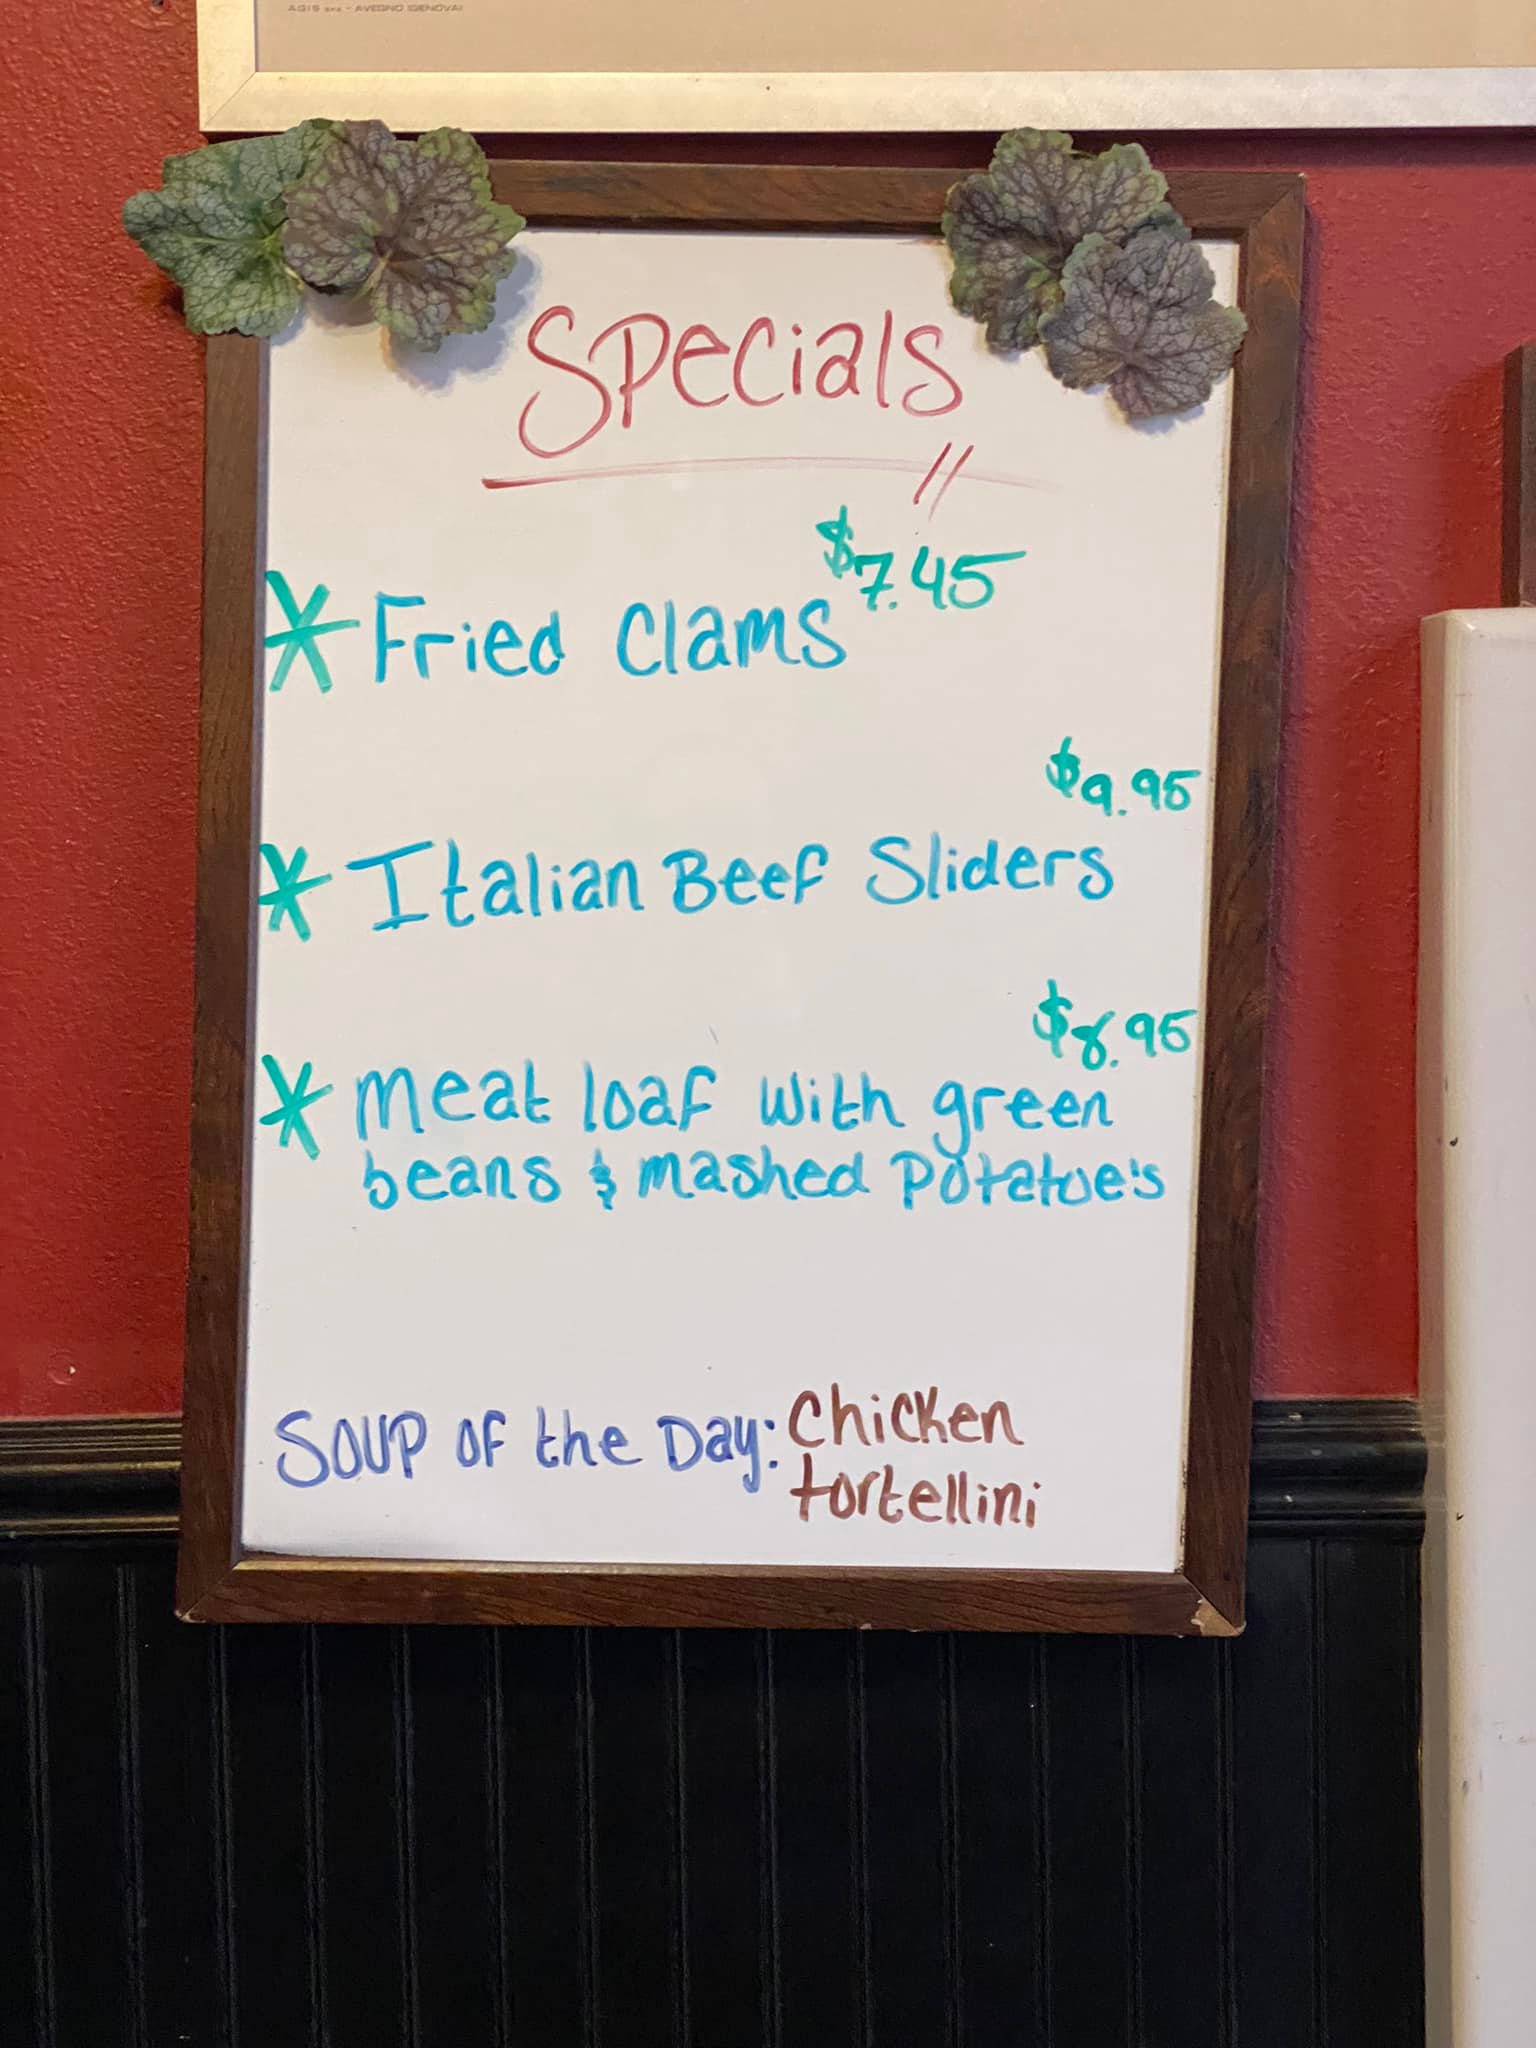 AGIS srl - AVEGNO (GENOVA)
Specials
$7.45
* Fried Clams
$9.95
* Italian Beef Sliders
$8.95
* Meat loaf with green
beans & mashed Potatoe's
Soup of the Day: Chicken
tortellini